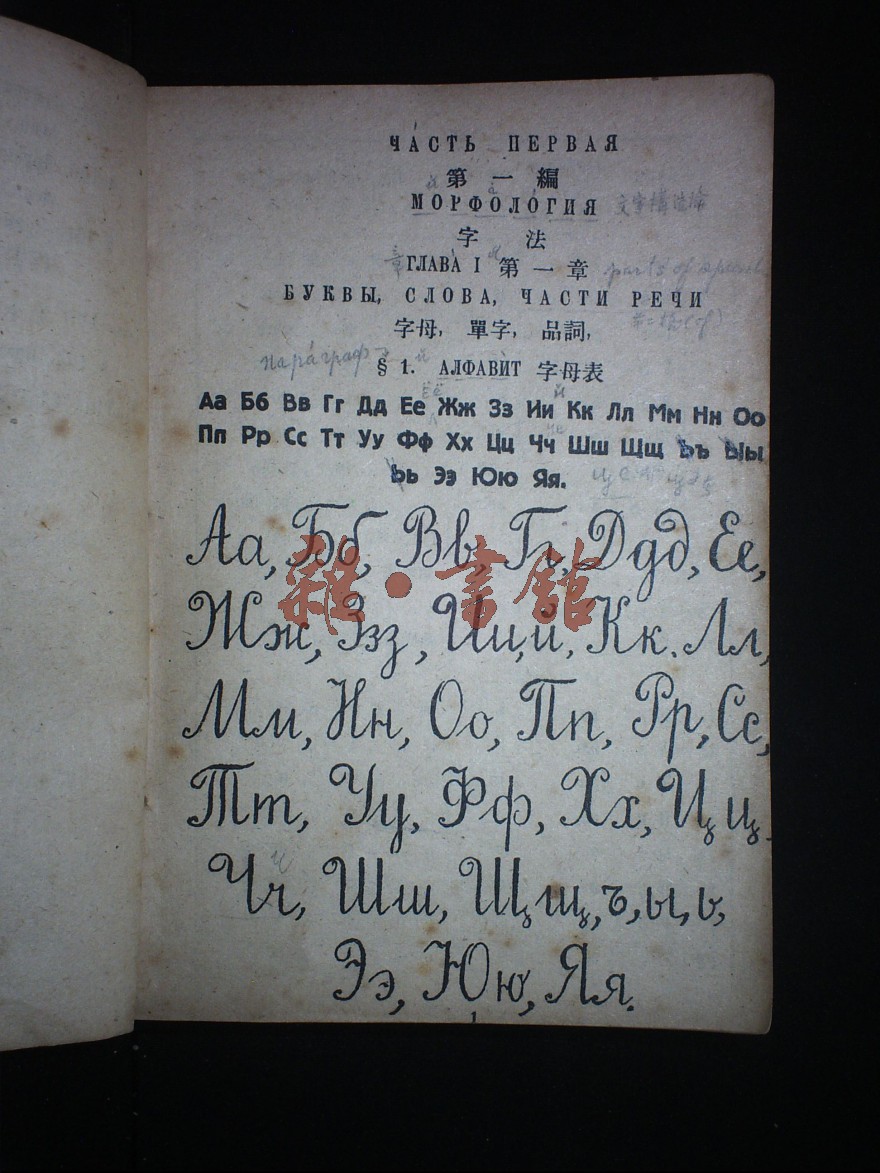 ЧАСТЬ ПЕРВАЯ
第一編
МОРФОЛОГИЯ
字 法
章 ГЛАВА I 第一章 parts of
БУКВЫ, СЛОВА, ЧАСТИ РЕЧИ
字母, 單字, 品詞,
Пара́граф
§ 1. АЛФАВИТ 字母表
Её й
Аа Бб Вв Гг Дд Ее Жж Зз Ии Кк Лл Мм Нн Оо
Пп Рр Сс Тт Уу Фф Хх Цц Чч Шш Щщ Ъъ Ыы
Ьь Ээ Юю Яя.
Аа, Бб, Вв, Гг, Ддд, Ее,
雜·書館
Жж, Ззз, Ии, й, Кк. Лл,
Мм, Нн, Оо, Пп, Рр, Сс,
Тт, Уу, Фф, Хх, Цц.
Чч, Шш, Щщ, ъ, ы, ь,
Ээ, Юю, Яя.